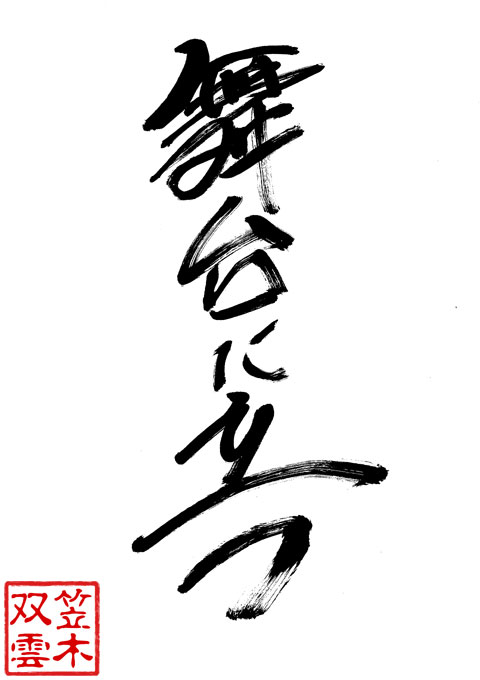 舞台に立つ
笠木
双雲